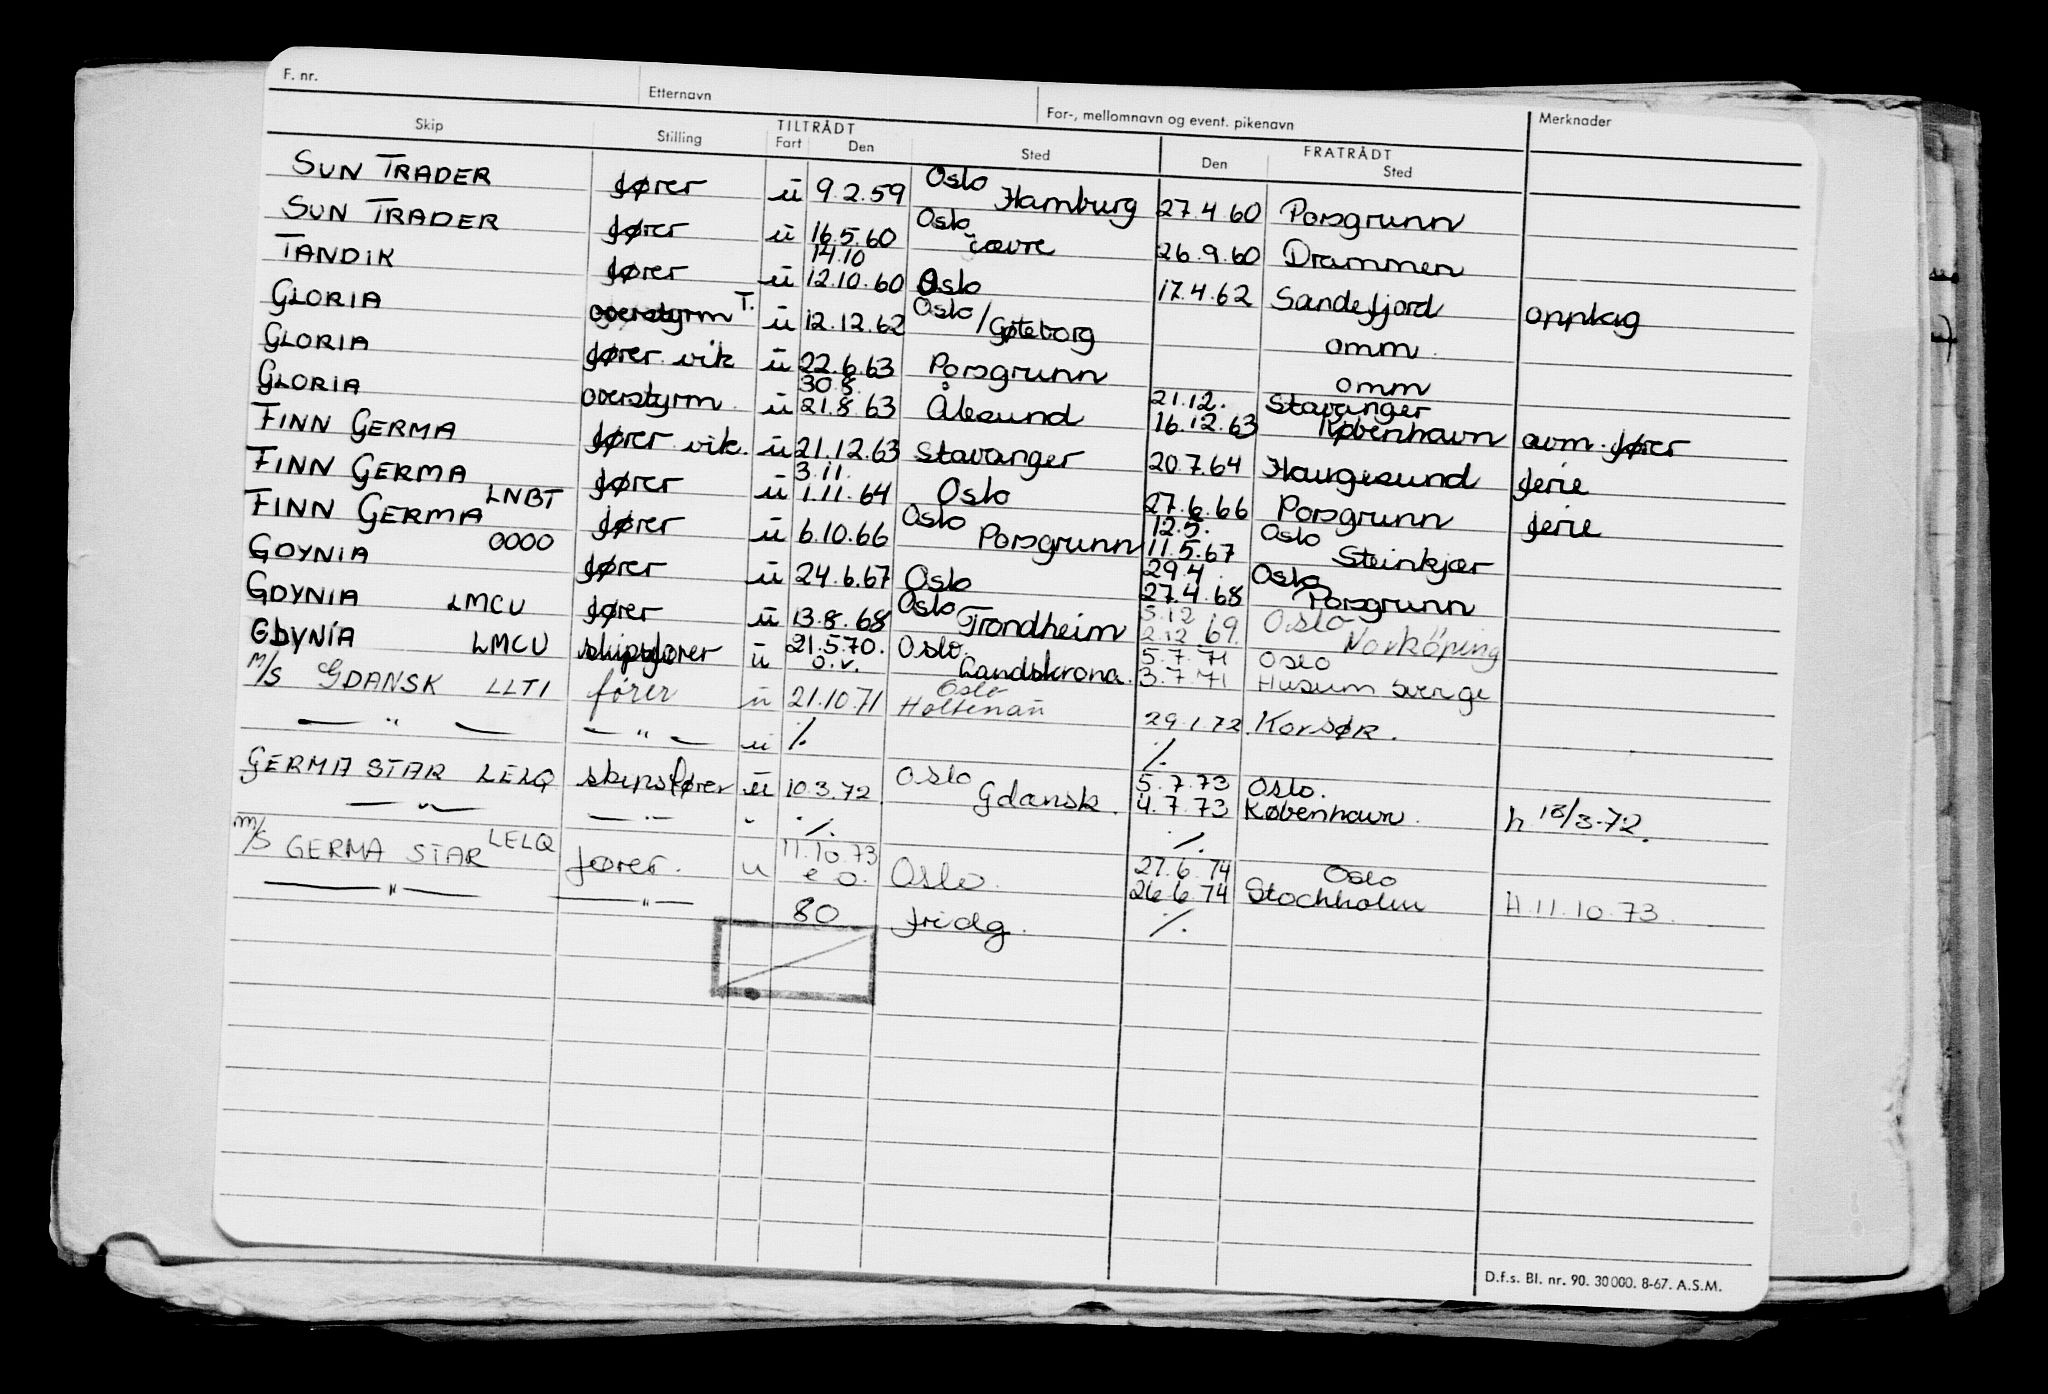 F. nr. Etternavn For-, mellomnavn og event. pikenavn Merknader
Skip Stilling TILTRÅDT Fart Den Sted FRATRÅDT Den Sted
SUN TRADER fører ū 9.2.59 Oslo Hamburg 27.4.60 Porsgrunn
SUN TRADER fører ū 16.5.60 Oslo 26.9.60 Drammen
TANDIK fører ū 14.10 12.10.60 Oslo 17.4.62 Sandefjord opplag
GLORIA overstyrm T. ū 12.12.62 Oslo / Gøteborg omm
GLORIA fører vik ū 22.6.63 Porsgrunn omm
GLORIA overstyrm. ū 30.8. 21.8.63 Ålesund 21.12. 16.12.63 Stavanger København avm. fører
FINN GERMA fører vik. ū 21.12.63 Stavanger 20.7.64 Haugesund ferie
FINN GERMA fører ū 3.11. 1.11.64 Oslo 27.6.66 Porsgrunn ferie
FINN GERMA LNBT fører ū 6.10.66 Oslo Porsgrunn 12.5. 11.5.67 Oslo Steinkjær
GDYNIA 0000 fører ū 24.6.67 Oslo 29.4. 27.4.68 Oslo Porsgrunn
GDYNIA LMCU fører ū 13.8.68 Oslo Trondheim 5.12 2.12 69. Oslo Norköping
GDYNIA LMCU skipsfører ū 21.5.70. o.v. Oslo. Landskrona. 5.7.71 3.7.71 Oslo Husum Sverige
M/S GDANSK LLTI fører ū 21.10.71 Oslo Holtenau 29.1.72. Korsør.
— " — — " — ū ./. ./.
GERMA STAR LELQ skipsfører ū 10.3.72 Oslo Gdansk. 5.7.73 4.7.73 Oslo. København. h 13/3-72.
— " — — " — " ./. ./.
M/S GERMA STAR LELQ fører. u 11.10.73 e o. Oslo. 27.6.74 26.6.74 Oslo Stockholm H. 11.10.73.
— " — — " — 80 fridg. ./.
D.f.s. Bl. nr. 90. 30 000. 8-67. A.S.M.